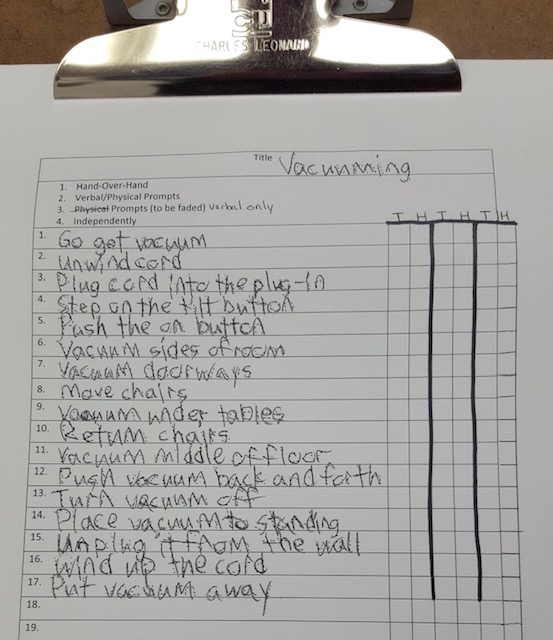 CHARLES LEONARD
Title Vacuumming
1. Hand-Over-Hand
2. Verbal/Physical Prompts
3. Physical Prompts (to be faded) Verbal only
4. Independently
T H T H T H
1. Go get vacuum
2. Unwind cord
3. Plug cord into the plug-in
4. Step on the tilt button
5. Push the on button
6. Vacuum sides of room
7. Vacuum doorways
8. Move chairs
9. Vacuum under tables
10. Return chairs
11. Vacuum middle of floor
12. Push vacuum back and forth
13. Turn vacuum off
14. Place vacuum to standing
15. Unplug it from the wall
16. Wind up the cord
17. Put vacuum away
18.
19.